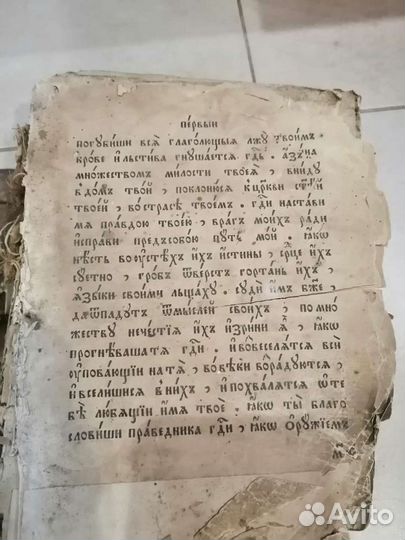 пе́рвыи
погꙋби́ши всѧ̀ глаго́лющыѧ лжꙋ̀ твои́мъ.
кро́ве и҆ льсти́ва гнꙋша́етсѧ гд҇ь. а҆́зъ на
мно́жествомъ ми́лости твоеѧ̀, вни́дꙋ
в до́мъ тво́й, поклоню́сѧ ц҃ркви ст҃ѣй
твое́й, во стра́сѣ твое́мъ. гд҇и наста́ви
мѧ пра́вдою твое́ю, вра́гъ мои́хъ ра́ди
и҆спра́ви предъ собо́ю пꙋ́ть мо́й. ꙗ҆́кѡ
нѣ́сть во ᲂу҆стѣ́хъ и҆́хъ и҆́стины, се́рце и҆́хъ
сꙋ́етно, гро́бъ ѿве́рстъ горта́нь и҆́хъ,
ꙗ҆зы́ки свои́ми льща́хꙋ. сꙋдѝ и҆̀мъ бж҃е,
да ѿпадꙋ́тъ ѿ мы́слей свои́хъ, по мно́
жествꙋ нече́стїѧ и҆́хъ и҆зри́ни ѧ҆̀, ꙗ҆́кѡ
прогнѣ́ваша тѧ гд҇и. и҆ во веселѧ́тсѧ всѝ
ᲂу҆пова́ющїи на тѧ̀, во вѣ́ки возра́дꙋютсѧ,
и҆ всели́шисѧ в ни́хъ, и҆ похва́лѧтсѧ ѡ҆ те
бѣ̀ лю́бѧщїи и҆́мѧ твоѐ. ꙗ҆́кѡ ты̀ благо
слови́ши пра́ведника гд҇и, ꙗ҆́кѡ ѻ҆рꙋ́жїемъ
Avito